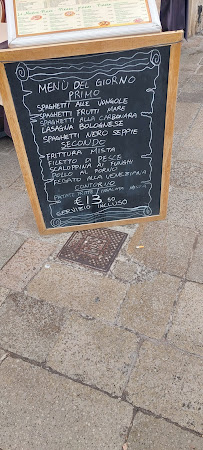 MENÙ DEL GIORNO
PRIMO
SPAGHETTI ALLE VONGOLE
SPAGHETTI FRUTTI MARE
SPAGHETTI ALLA CARBONARA
LASAGNA BOLOGNESE
SPAGHETTI NERO SEPPIE
SECONDO
FRITTURA MISTA
FILETTO DI PESCE
SCALOPPINA AI FUNGHI
POLLO AL FORNO
FEGATO ALLA VENEZIANA
CONTORNO
PATATE FRITTE / INSALATA MISTA
€ 13.50
SERVIZIO INCLUSO